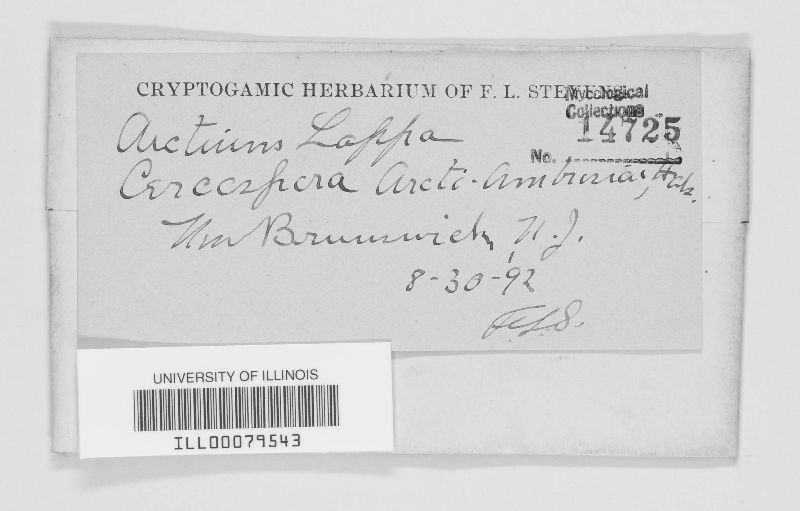 CRYPTOGAMIC HERBARIUM OF F. L. STEVENS
Mycological
Collections
14725
No.
Arctium Lappa
Cercospora Arcti-Ambrosiae, Hals.
New Brunswick, N. J.
8-30-92
FLS.
UNIVERSITY OF ILLINOIS
ILL00079543